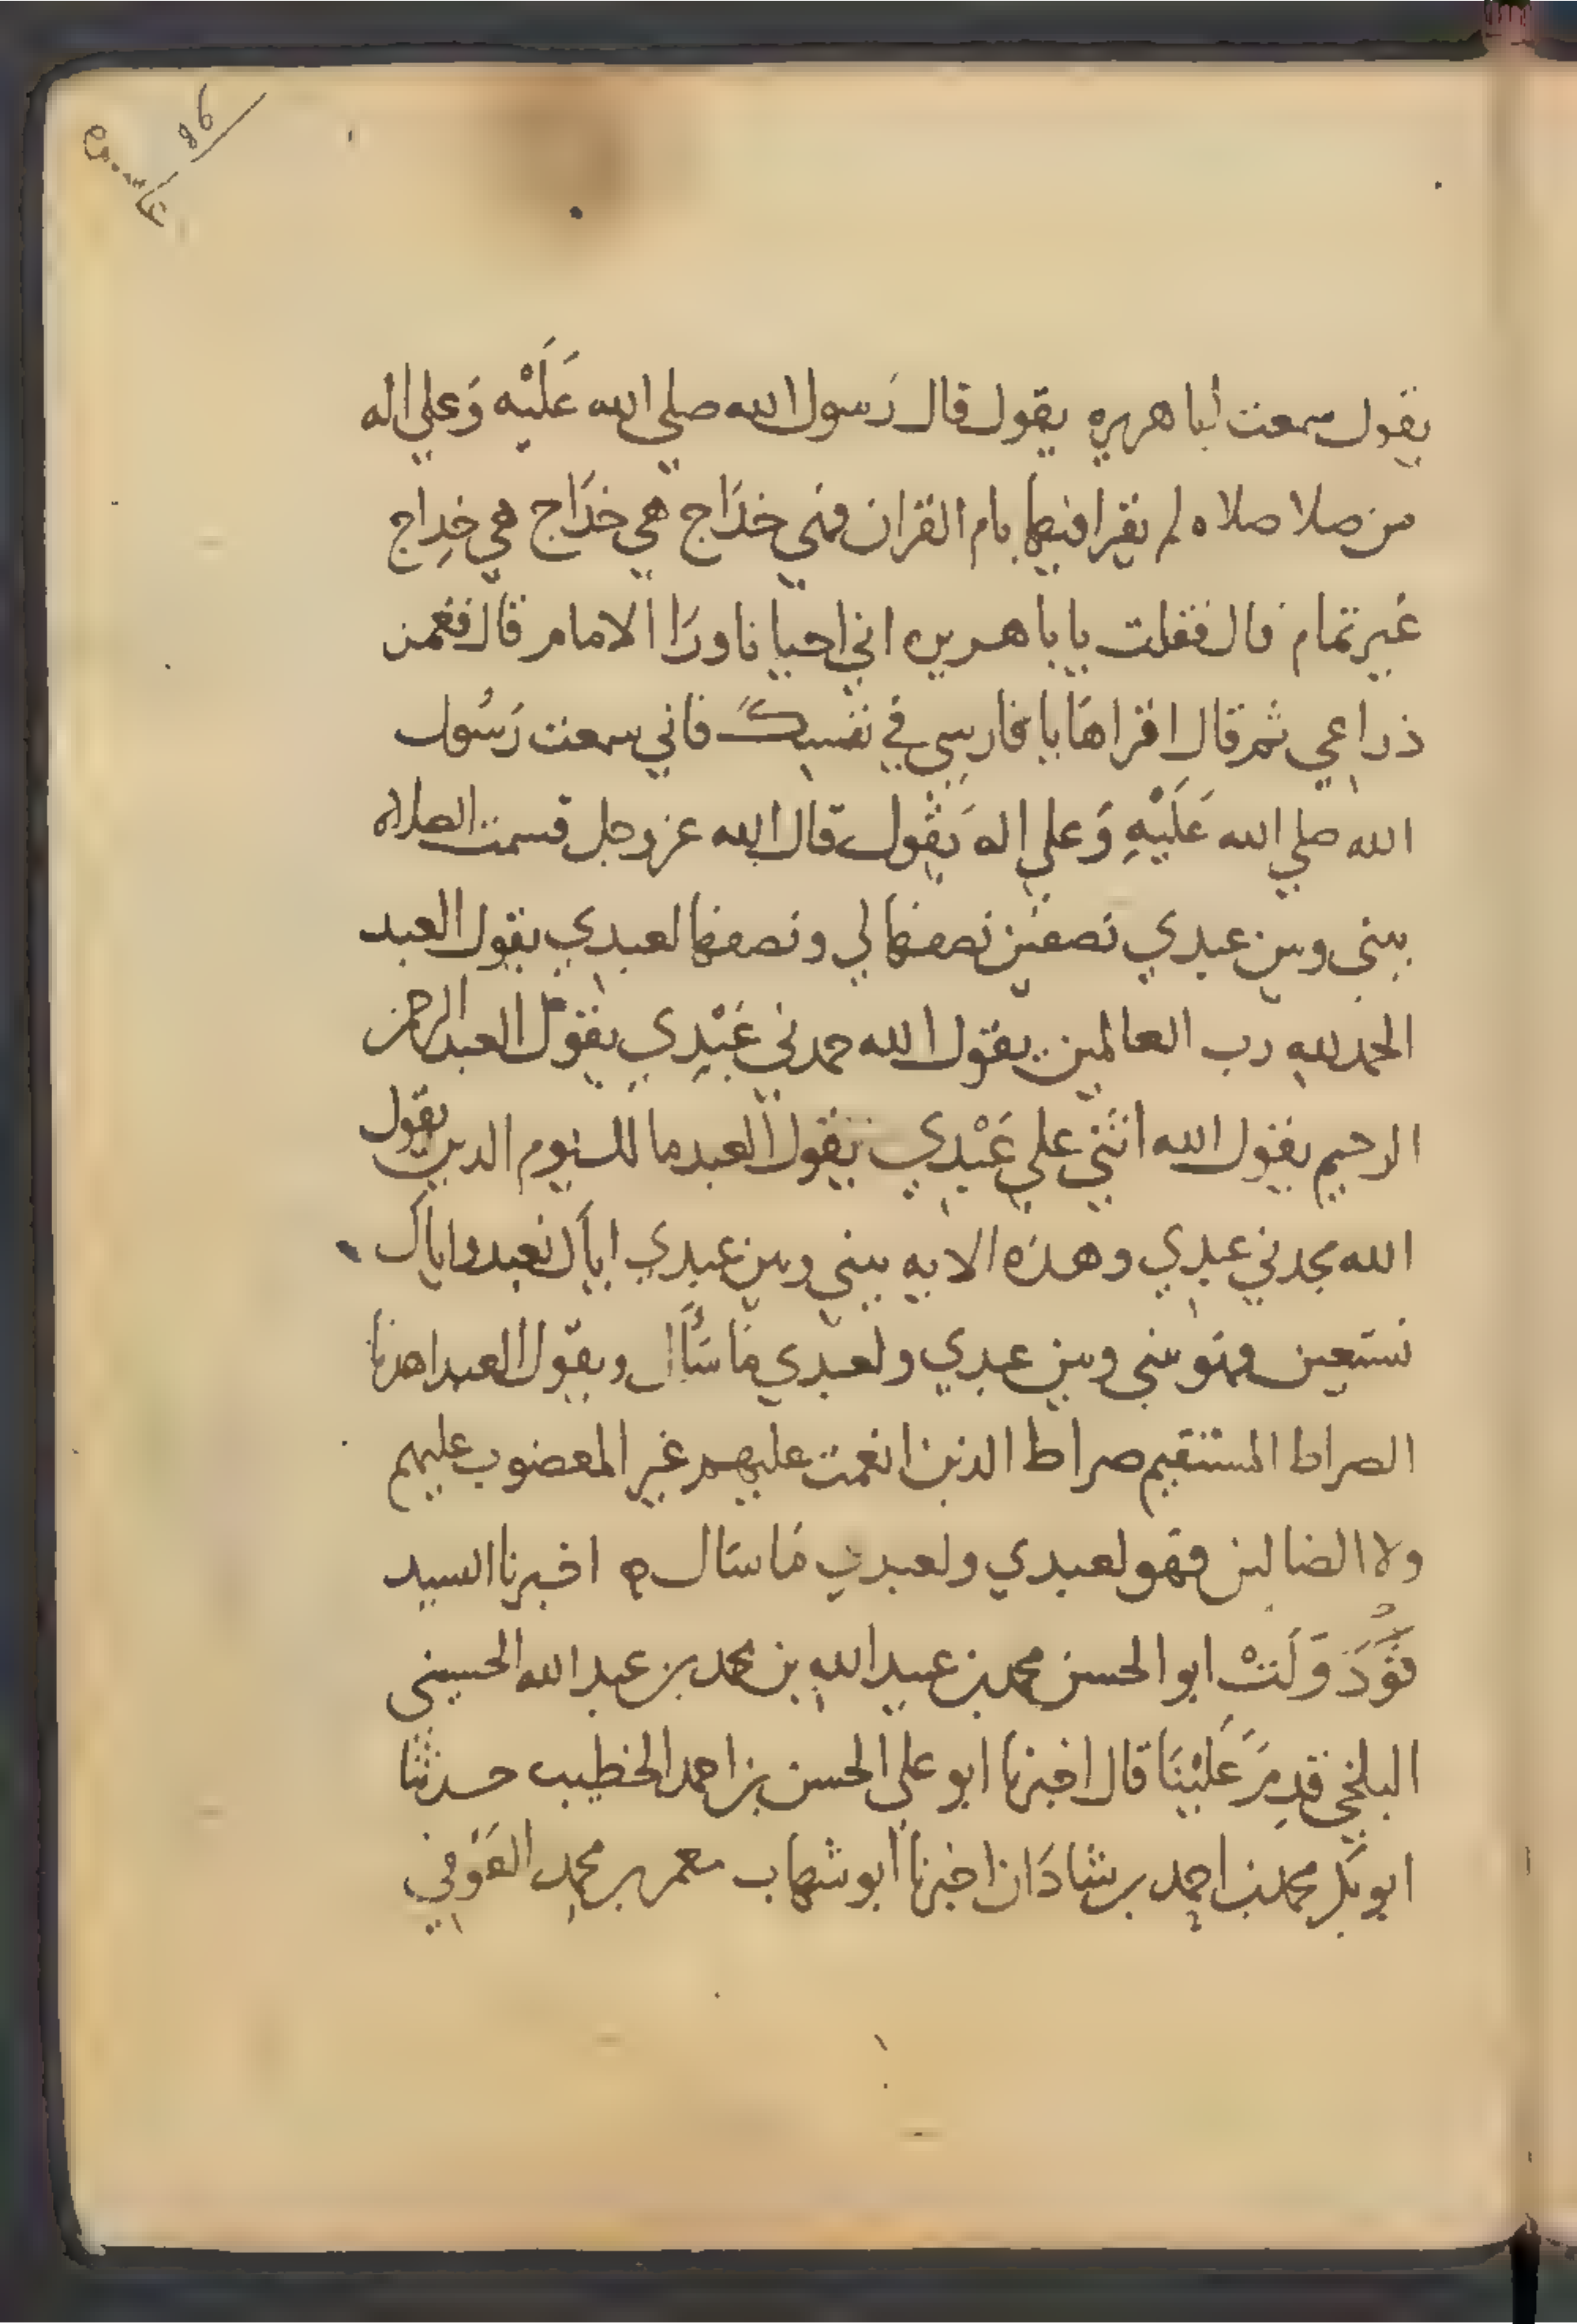 يقول سمعت ابا هريره يقول قال رَسول الله صلي الله عَلَيْه وَعلي اله
من صلا صلاه لم يقرا فيها بام القران فهي خدَاج هي خدَاج هي خِداج
غير تمام قال فقلت يا با هريره اني احيانا ورَا الامام قال فغمز
ذراعي ثم قال اقراها يا فارسِي في نفسِكَ فاني سمعت رَسُول
الله صلي الله عَلَيْهِ وَعلي اله يَقُول قال الله عز وجل قسمت الصلاه
بيني وبين عبدي نصفين نصفها لي ونصفها لعبدي يقول العبد
الحمد للهِ رب العالمين يقول الله حمدني عَبْدِي يقول العبد الرحمن
الرحيم يقول الله اثني علي عَبْدِي يقول العبد مالك يوم الدين يقول
الله مجدني عبدِي وهذه الايه بيني وبين عبدي اياك نعبد واياك
نستعين فهو بيني وبين عبدي ولعبدي مَا سَأَل ويقول العبد اهدنا
الصراط المستقيم صراط الذين انعمت عليهم غير المغضوب عليهم
ولا الضالين فهو لعبدي ولعبدي مَا سَال ه اخبرنا السيد
ابو الحسن محمد بن عبيد اللهِ بن محمد بن عبد الله الحسيني
البلخي قدِمَ عَلَيْنَا قال اخبرنا ابو علي الحسن بن احمد الخطيب حدثنا
ابو بَكر محمد بن احمد بن شادَان اخبرنا ابو شهاب معمر بن محمد العَوْفي